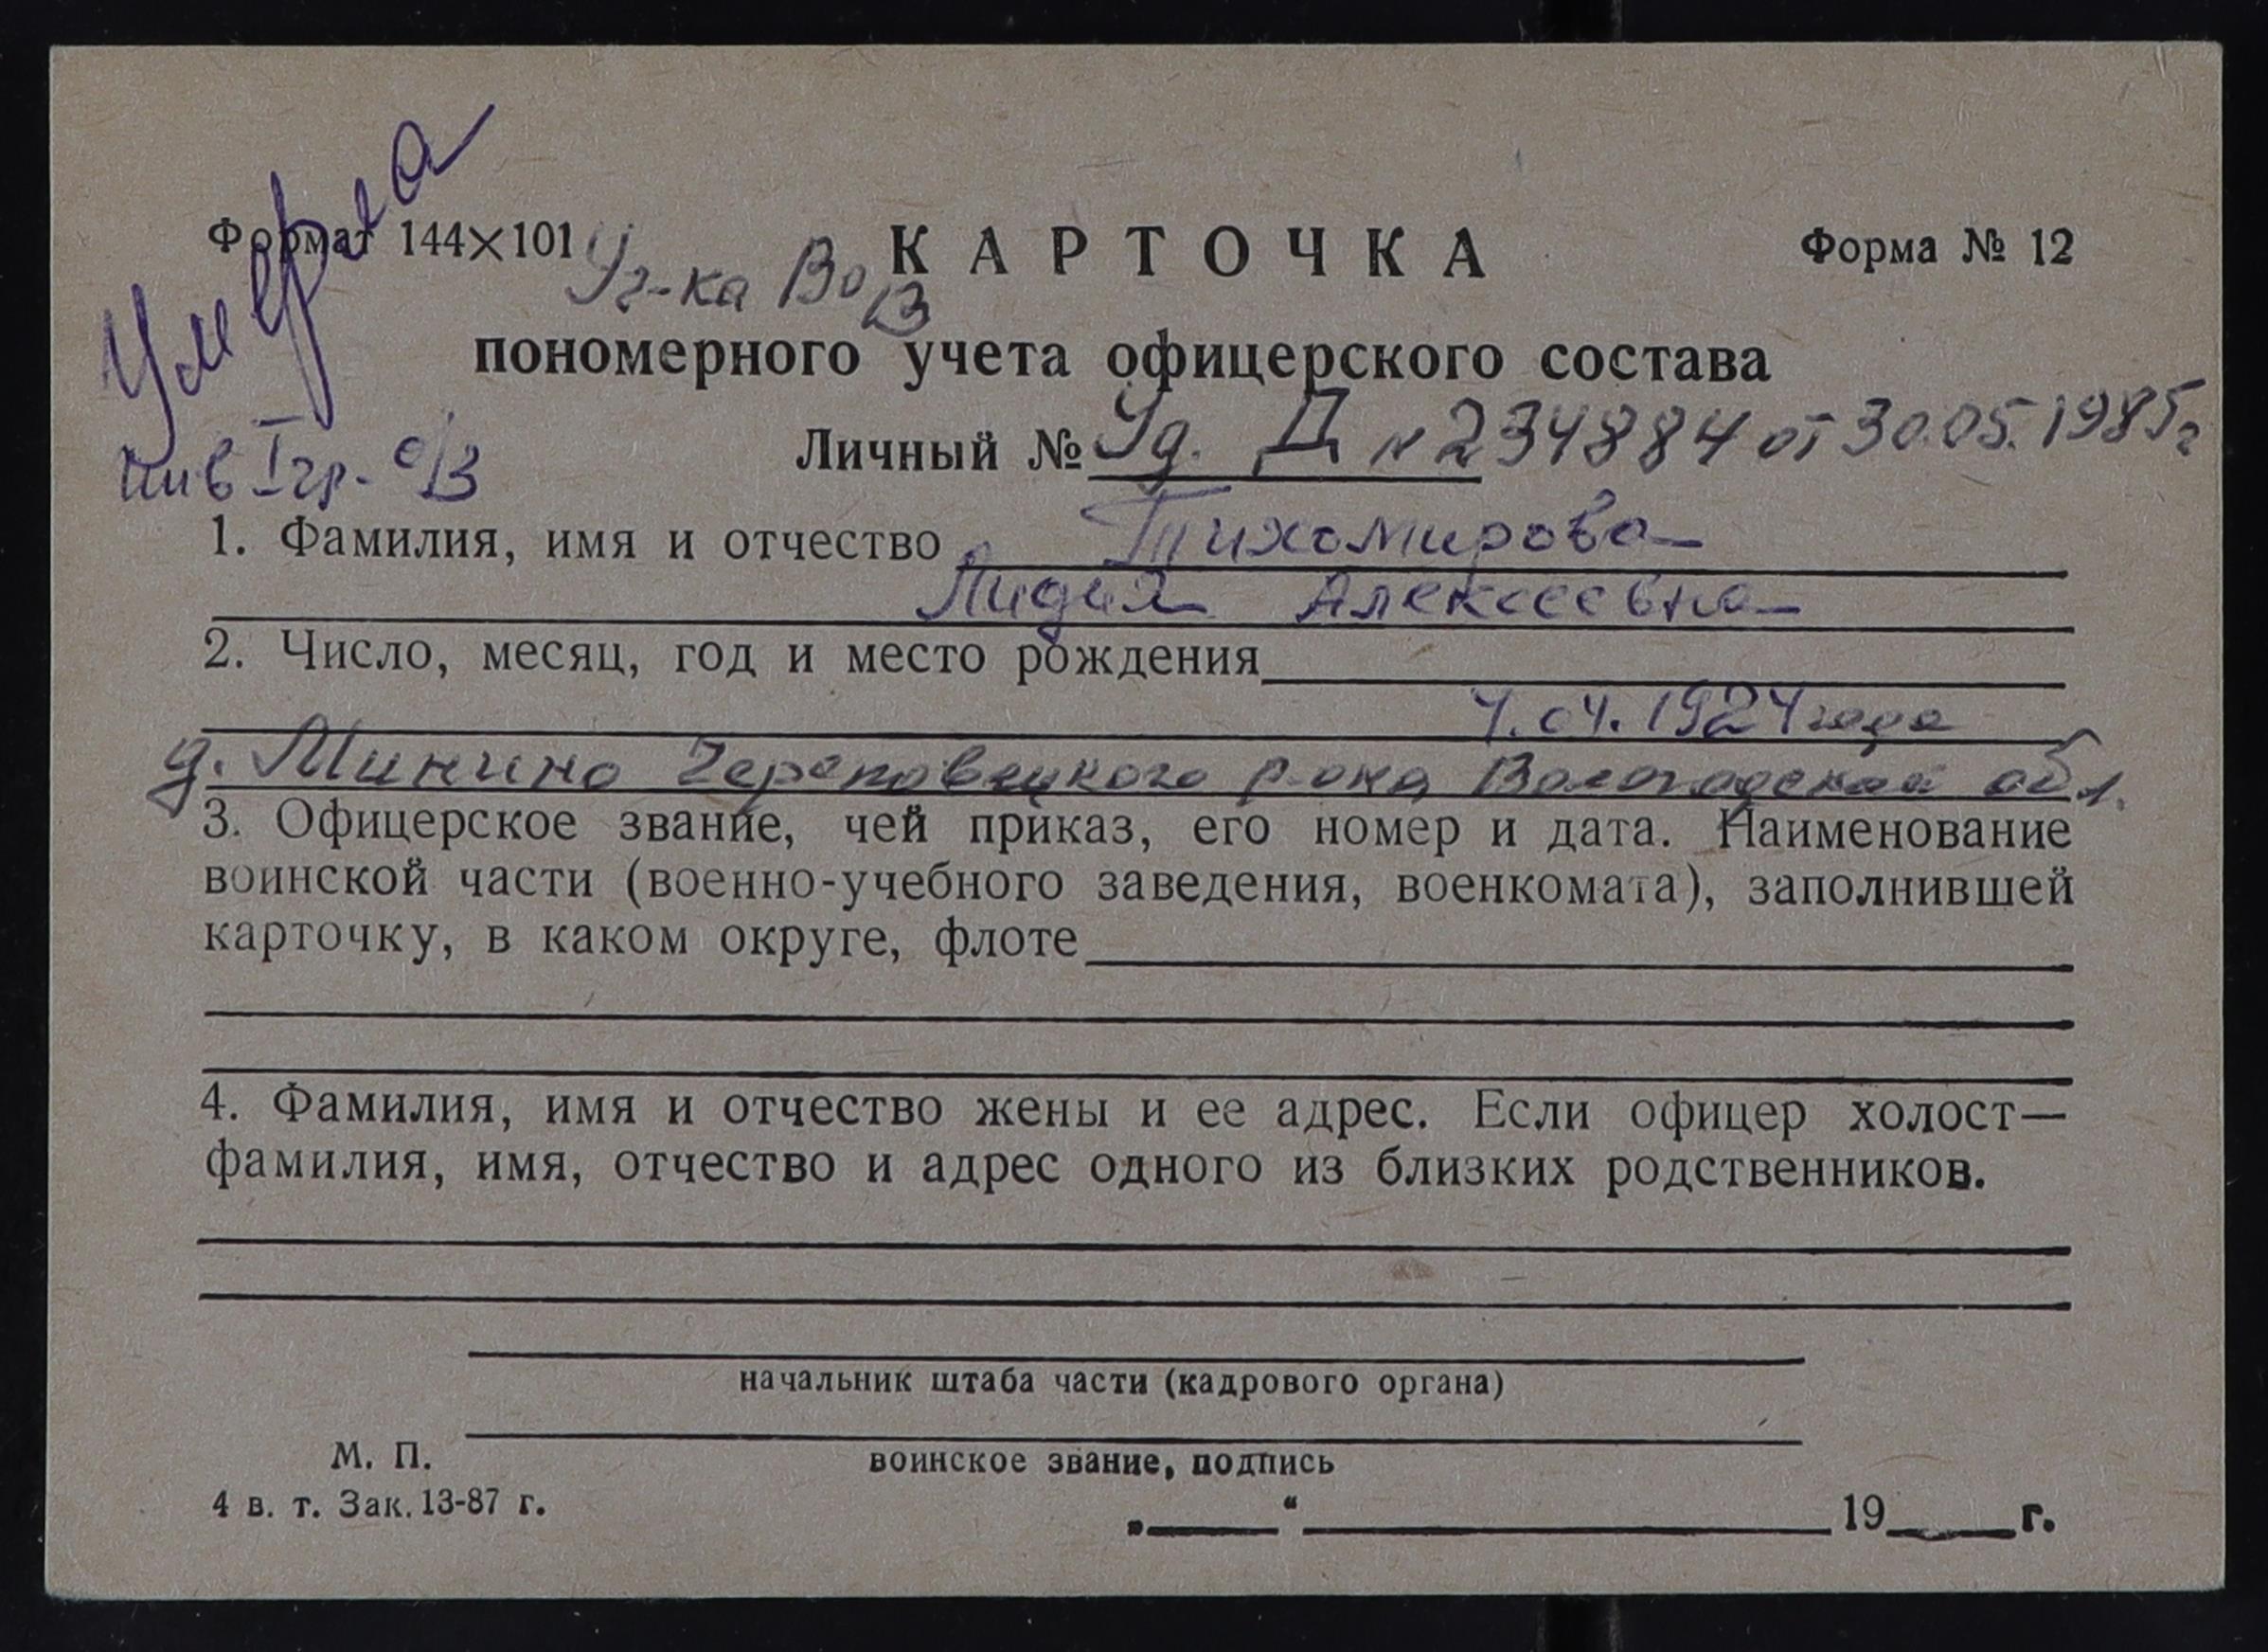 Умерла
Формат 144×101
Уч-ка ВоВ
КАРТОЧКА
Форма № 12
пономерного учета офицерского состава
Личный № Уд. Д № 234884 от 30.05.1985г
инв I гр. о/з
1. Фамилия, имя и отчество Тихомирова
Лидия Алексеевна
2. Число, месяц, год и место рождения
4.04.1924 года
д. Минино Череповецкого р-она Вологодской обл.
3. Офицерское звание, чей приказ, его номер и дата. Наименование
воинской части (военно-учебного заведения, военкомата), заполнившей
карточку, в каком округе, флоте
4. Фамилия, имя и отчество жены и ее адрес. Если офицер холост—
фамилия, имя, отчество и адрес одного из близких родственников.
начальник штаба части (кадрового органа)
М. П.
воинское звание, подпись
4 в. т. Зак. 13-87 г.
„ “ 19 г.